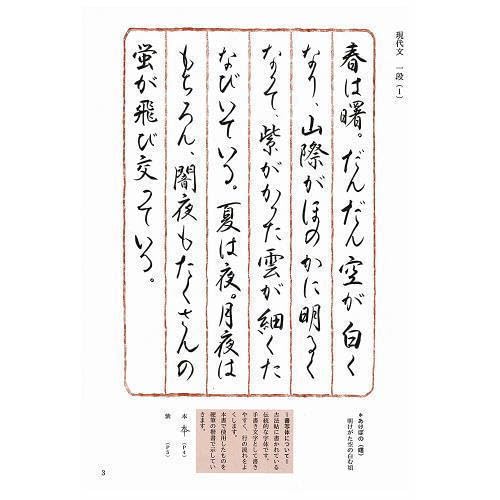 現代文 一段(1)
春は曙。だんだん空が白く
なり、山際がほのかに明るく
なって、紫がかった雲が細くた
なびいている。夏は夜。月夜は
もちろん、闇夜もたくさんの
蛍が飛び交っている。
*あけぼの(曙)
明けがた空の白む頃
ー書写体についてー
古法帖に書かれている
伝統的な字体です。
手書き文字として書き
やすく、行の流れをよ
くします。
本書で使用したものを
硬筆の楷書で示してい
きます。
本 (P4)
紫 (P5)
3